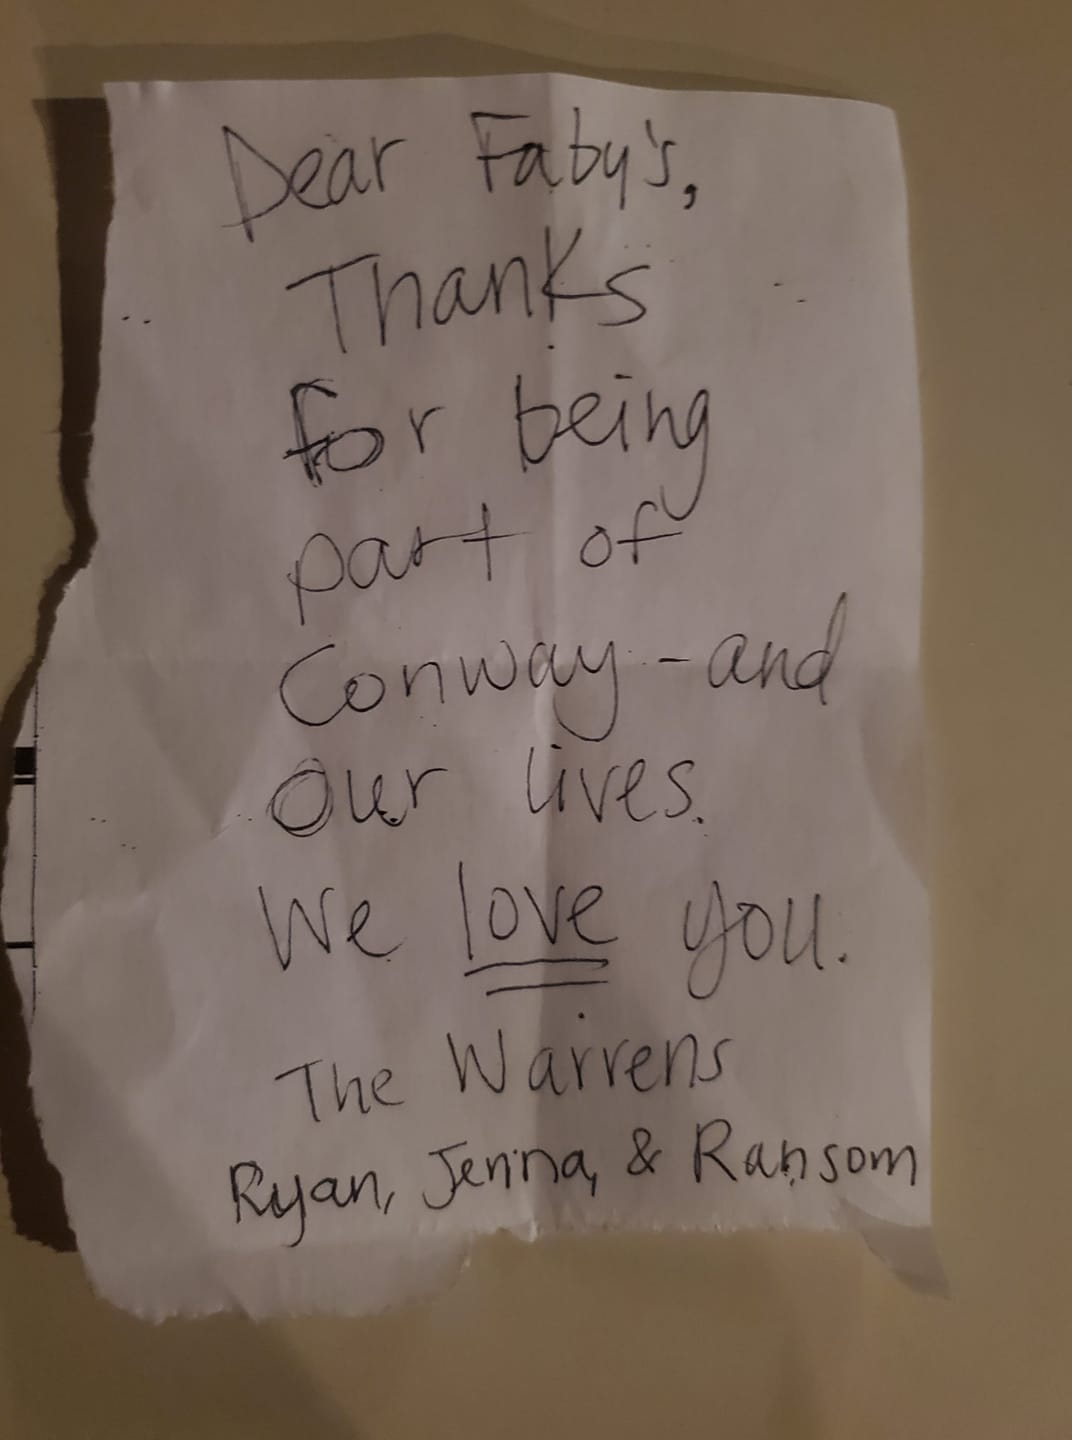 Dear Faby's,
Thanks
for being
part of
Conway - and
Our lives.
We love you.
The Warrens
Ryan, Jenna, & Ransom